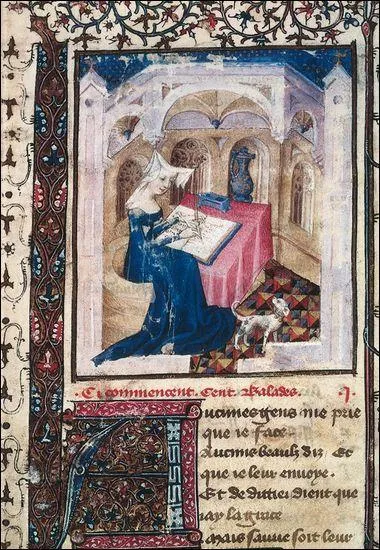 · Cy commencent. Cent. Balades · j
Aucunes gens me prie
que ie face
Aucuns beaulz diz Et
que ie leur envoye.
Et de dittier dient que
iay la grace
Mais sauve soit leur